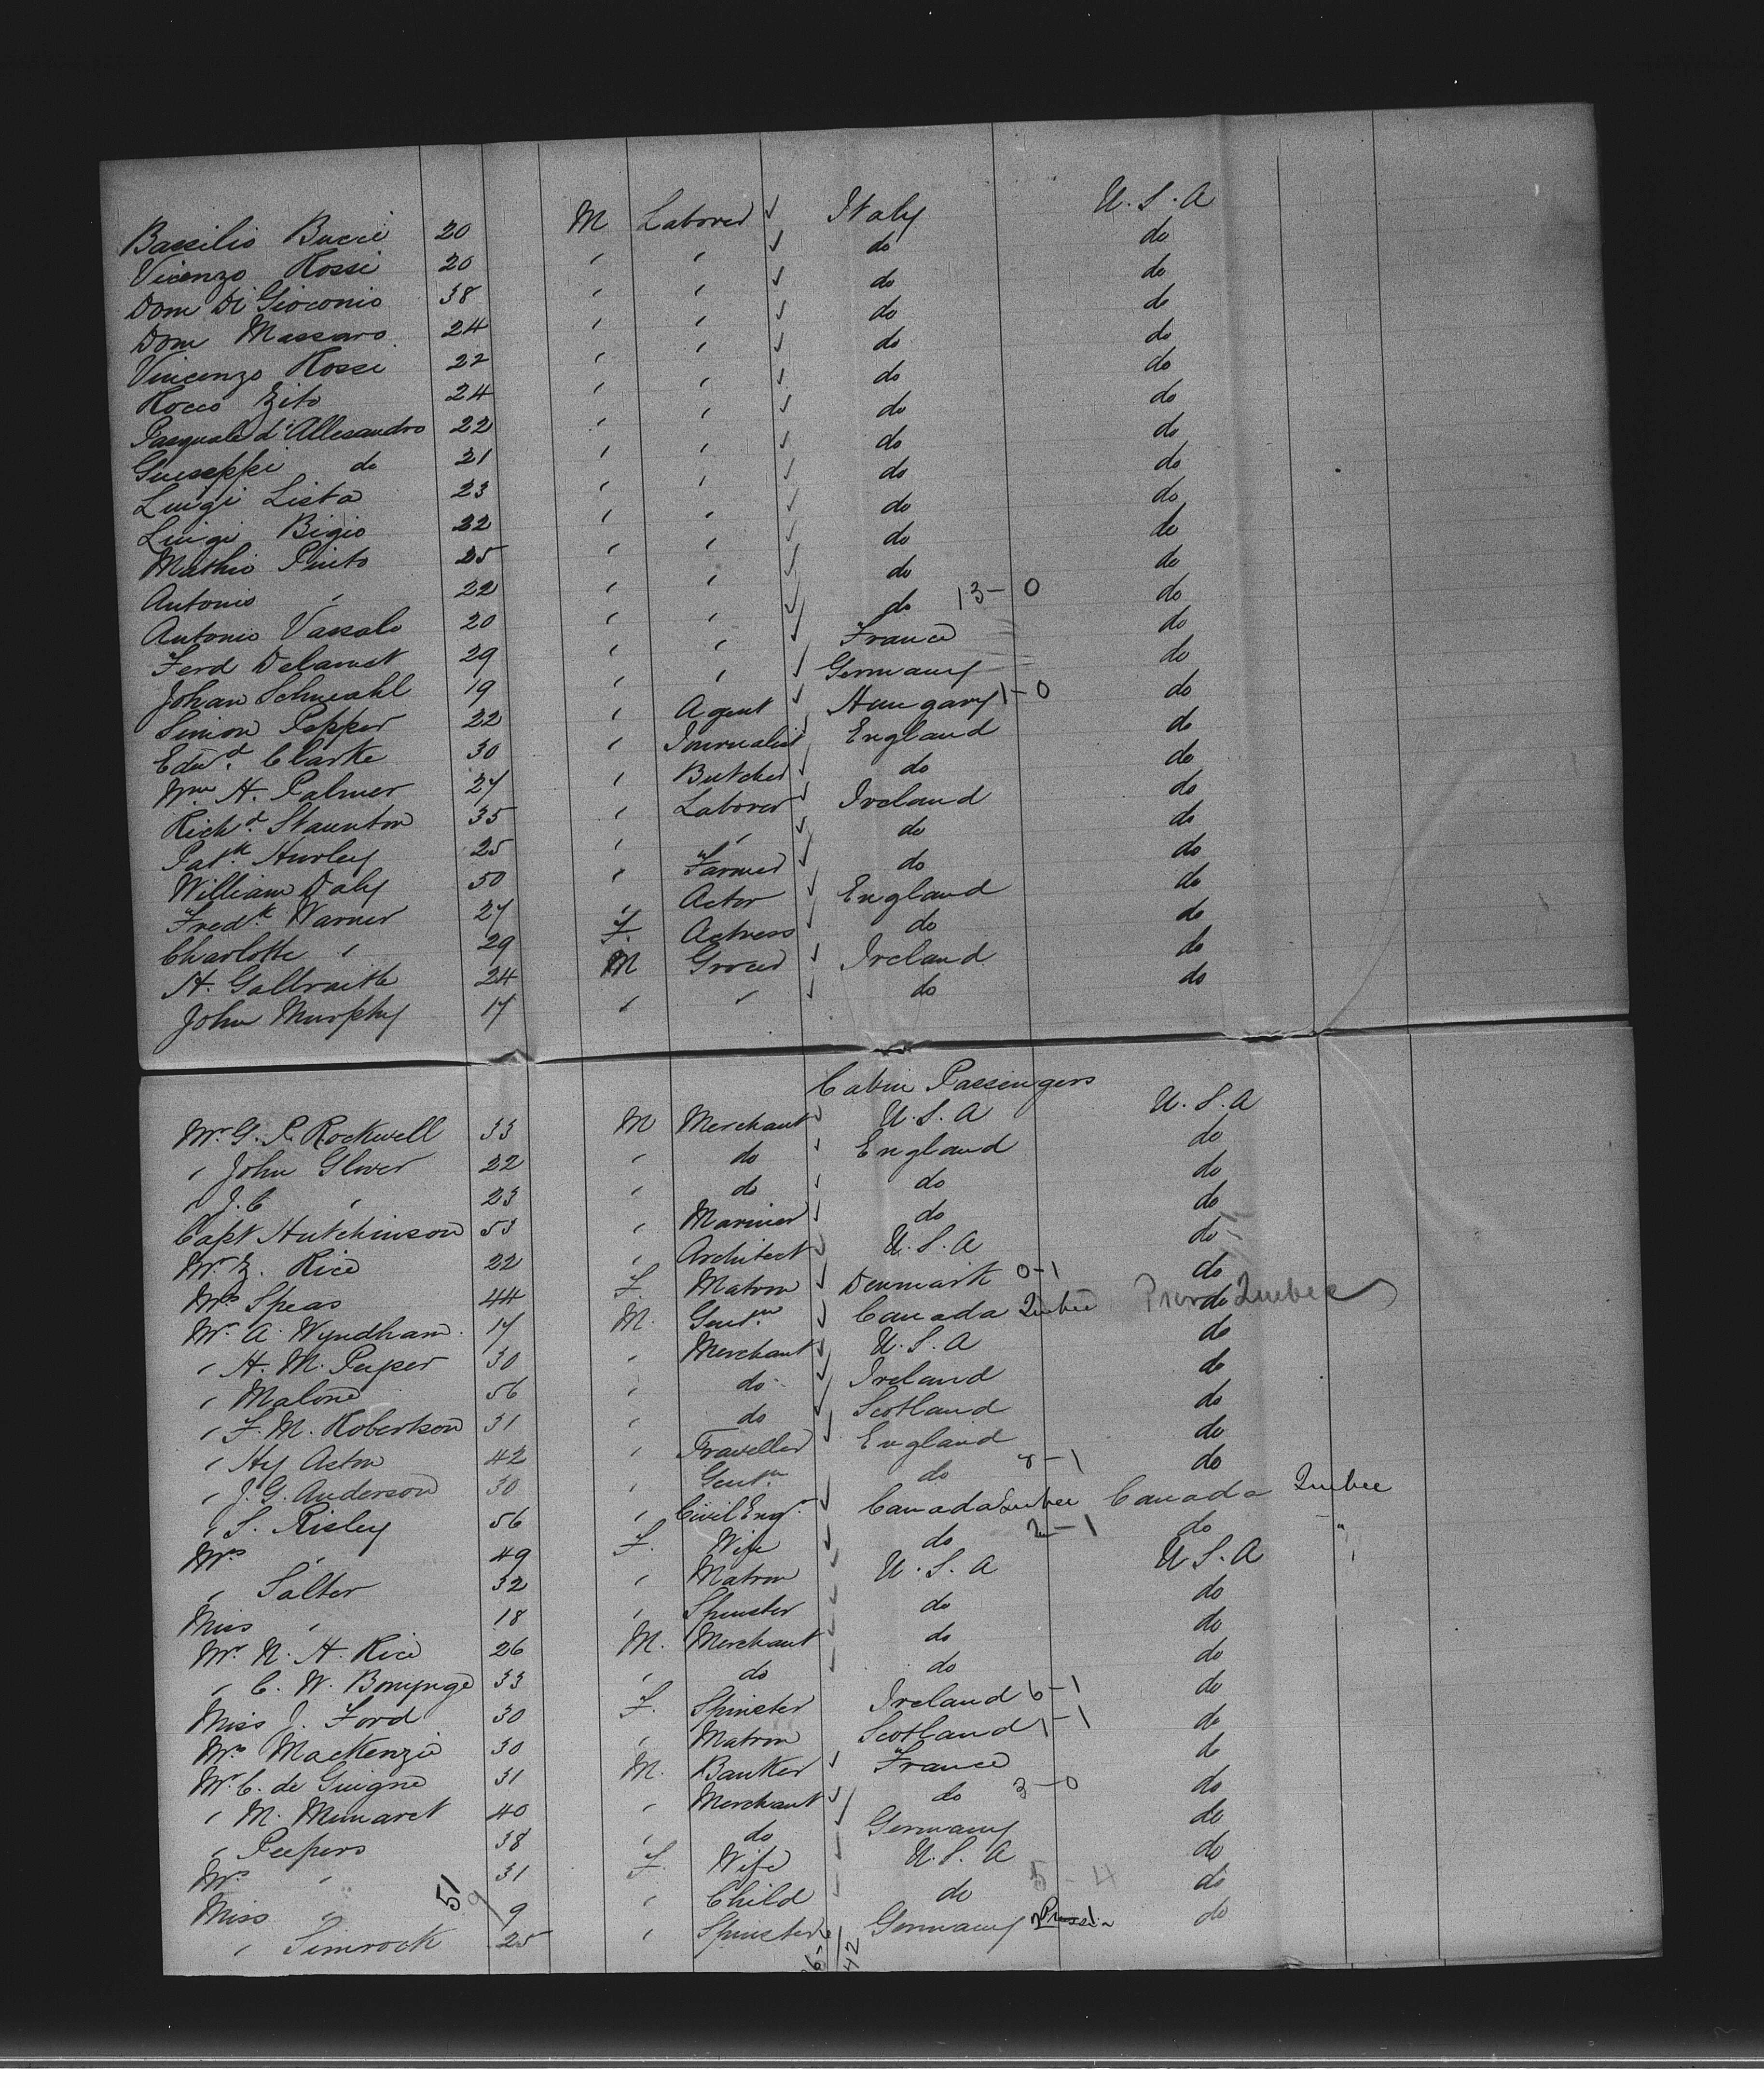 Bassilio Bucci 20 M Laborer ✓ Italy U.S.A
Vicenzo Rossi 20 " " ✓ do do
Dom Di Gioconio 38 " " ✓ do do
Dom Massaro 24 " " ✓ do do
Vincenzo Rossi 22 " " ✓ do do
Rocco Zito 24 " " ✓ do do
Pasquale d'Allesandro 22 " " ✓ do do
Guiseppi do 21 " " ✓ do do
Luigi Lista 23 " " ✓ do do
Luigi Bigio 22 " " ✓ do do
Mathio Pinto 25 " " ✓ do do
Antonio " 22 " " ✓ do do
Antonio Vassalo 20 " " ✓ do 13-0 do
Ferd 29 " " ✓ France do
Johan 19 " " ✓ Germany do
Simon Pepper 22 " Agent ✓ Hungary 1-0 do
Edwd. Clarke 30 " Journalist England do
Wm H. Palmer 27 " Butcher ✓ do do
Richd. Staunton 35 " Laborer ✓ Ireland do
Patk. Hurley 25 " " ✓ do do
William Daly 50 " Farmer ✓ do do
Fredk. Warner 27 " Actor ✓ England do
Charlotte " 29 F. Actress ✓ do do
H. Galbraith 24 M Grocer ✓ Ireland do
John Murphy 17 " " ✓ do do
Cabin Passengers
Mr. G. P. Rockwell 33 M Merchant ✓ U.S.A U.S.A
" John Glover 22 " do ✓ England do
" J. C " 23 " do ✓ do do
Capt Hutchinson 53 " Mariner ✓ do do
Mr. Z. Rice 22 " Architect ✓ U.S.A do
Mrs Speas 44 F. Matron ✓ Denmark 0-1 do
Mr. A. Wyndham 17 M. Gentm ✓ Canada Quebec do Quebec
" H. M. Piper 30 " Merchant ✓ U.S.A do
" Malone 56 " do ✓ Ireland do
" F. M. Robertson 31 " do ✓ Scotland do
" Hy Acton 42 " Traveller ✓ England do
" J. G. Anderson 30 " Gentn. do 8-1 do
" S. Risley 56 " Civil Engr. ✓ Canada Quebec Canada Quebec
Mrs " 49 F. Wife ✓ do 2-1 do "
" Salter 32 " Matron ✓ U.S.A U.S.A "
Miss " 18 " Spinster ✓ do do
Mr. N. H. Rice 26 M. Merchant ✓ do do
" C. W. Bonynge 33 " do ✓ do do
Miss J. Ford 30 F. Spinster Ireland 6-1 do
Mrs Mackenzie 30 " Matron Scotland 1-1 do
Mr. C. de Guigne 31 M. Banker ✓ France do
" M. Munaret 40 " Merchant ✓ do 3-0 do
" Peepers 38 " do ✓ Germany do
Mrs " 31 F. Wife U.S.A do
Miss " 9 " Child do 5-4 do
" Simrock 25 " Spinster Germany Prussia do
51
42